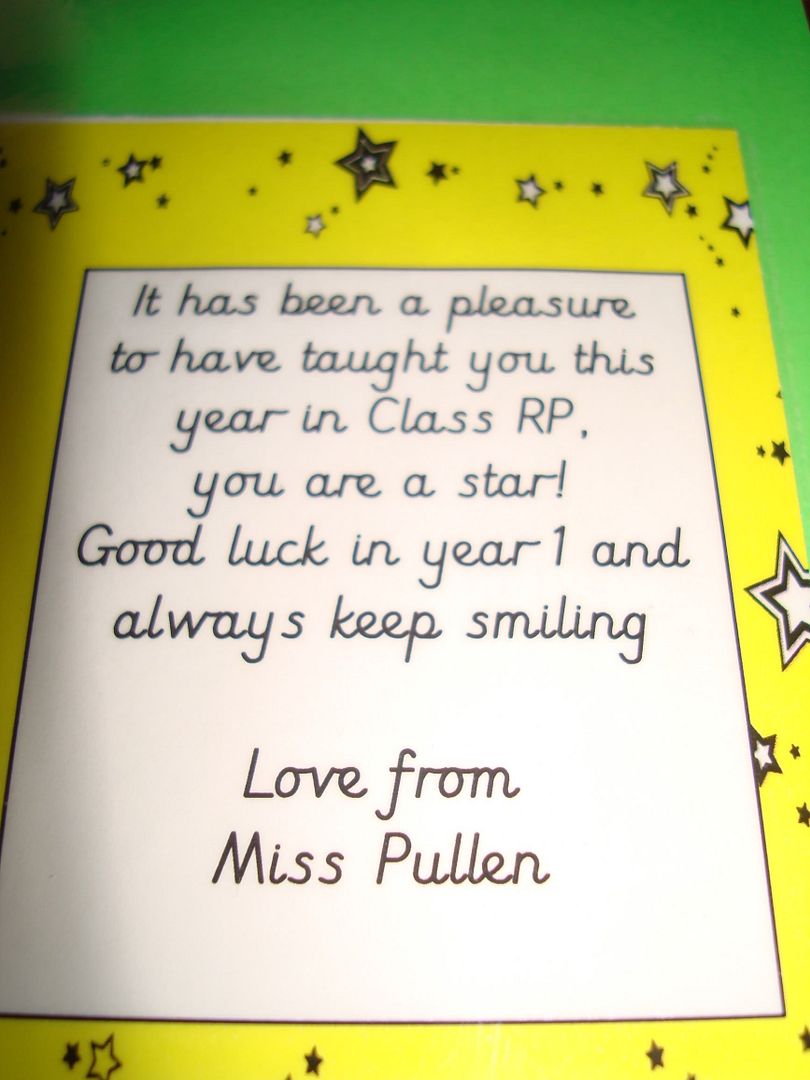 It has been a pleasure
to have taught you this
year in Class RP,
you are a star!
Good luck in year 1 and
always keep smiling
Love from
Miss Pullen